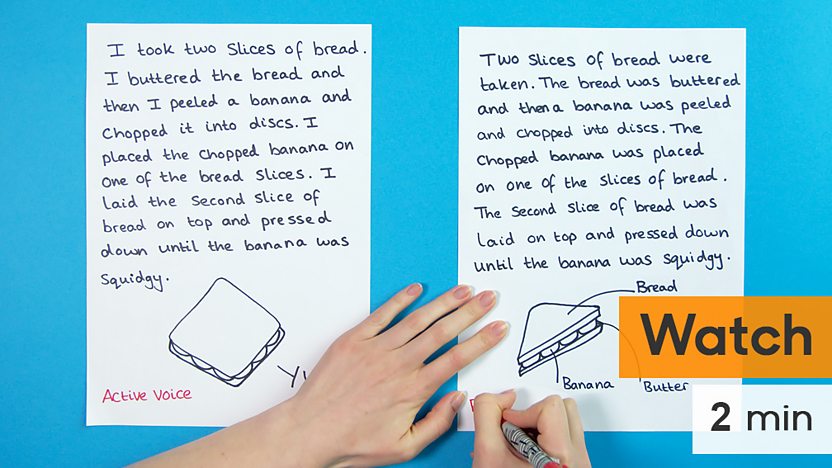 I took two slices of bread.
I buttered the bread and
then I peeled a banana and
chopped it into discs. I
placed the chopped banana on
one of the bread slices. I
laid the second slice of
bread on top and pressed
down until the banana was
squidgy.
Active Voice
Two slices of bread were
taken. The bread was buttered
and then a banana was peeled
and chopped into discs. The
chopped banana was placed
on one of the slices of bread.
The second slice of bread was
laid on top and pressed down
until the banana was squidgy.
Bread
Banana
Butter
Watch
2 min